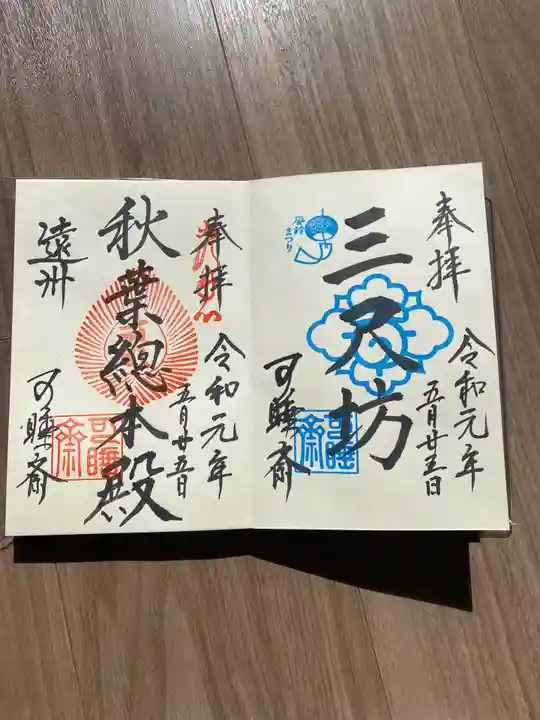 奉拝
令和元年
五月廿五日
三尺坊
風鈴
まつり
可睡斎
可睡斎
奉拝
令和元年
五月廿五日
秋葉總本殿
遠州
可睡斎
可睡斎